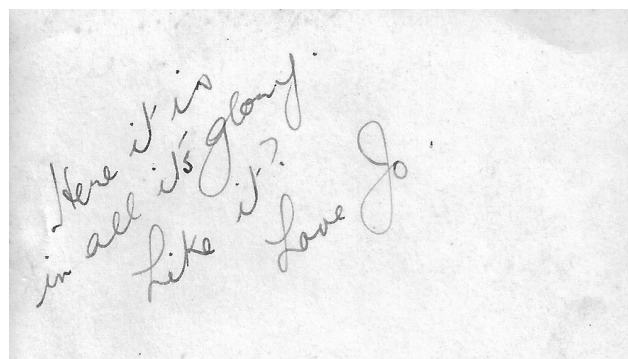 Here it is
in all it's glory.
Like it?
Love Jo